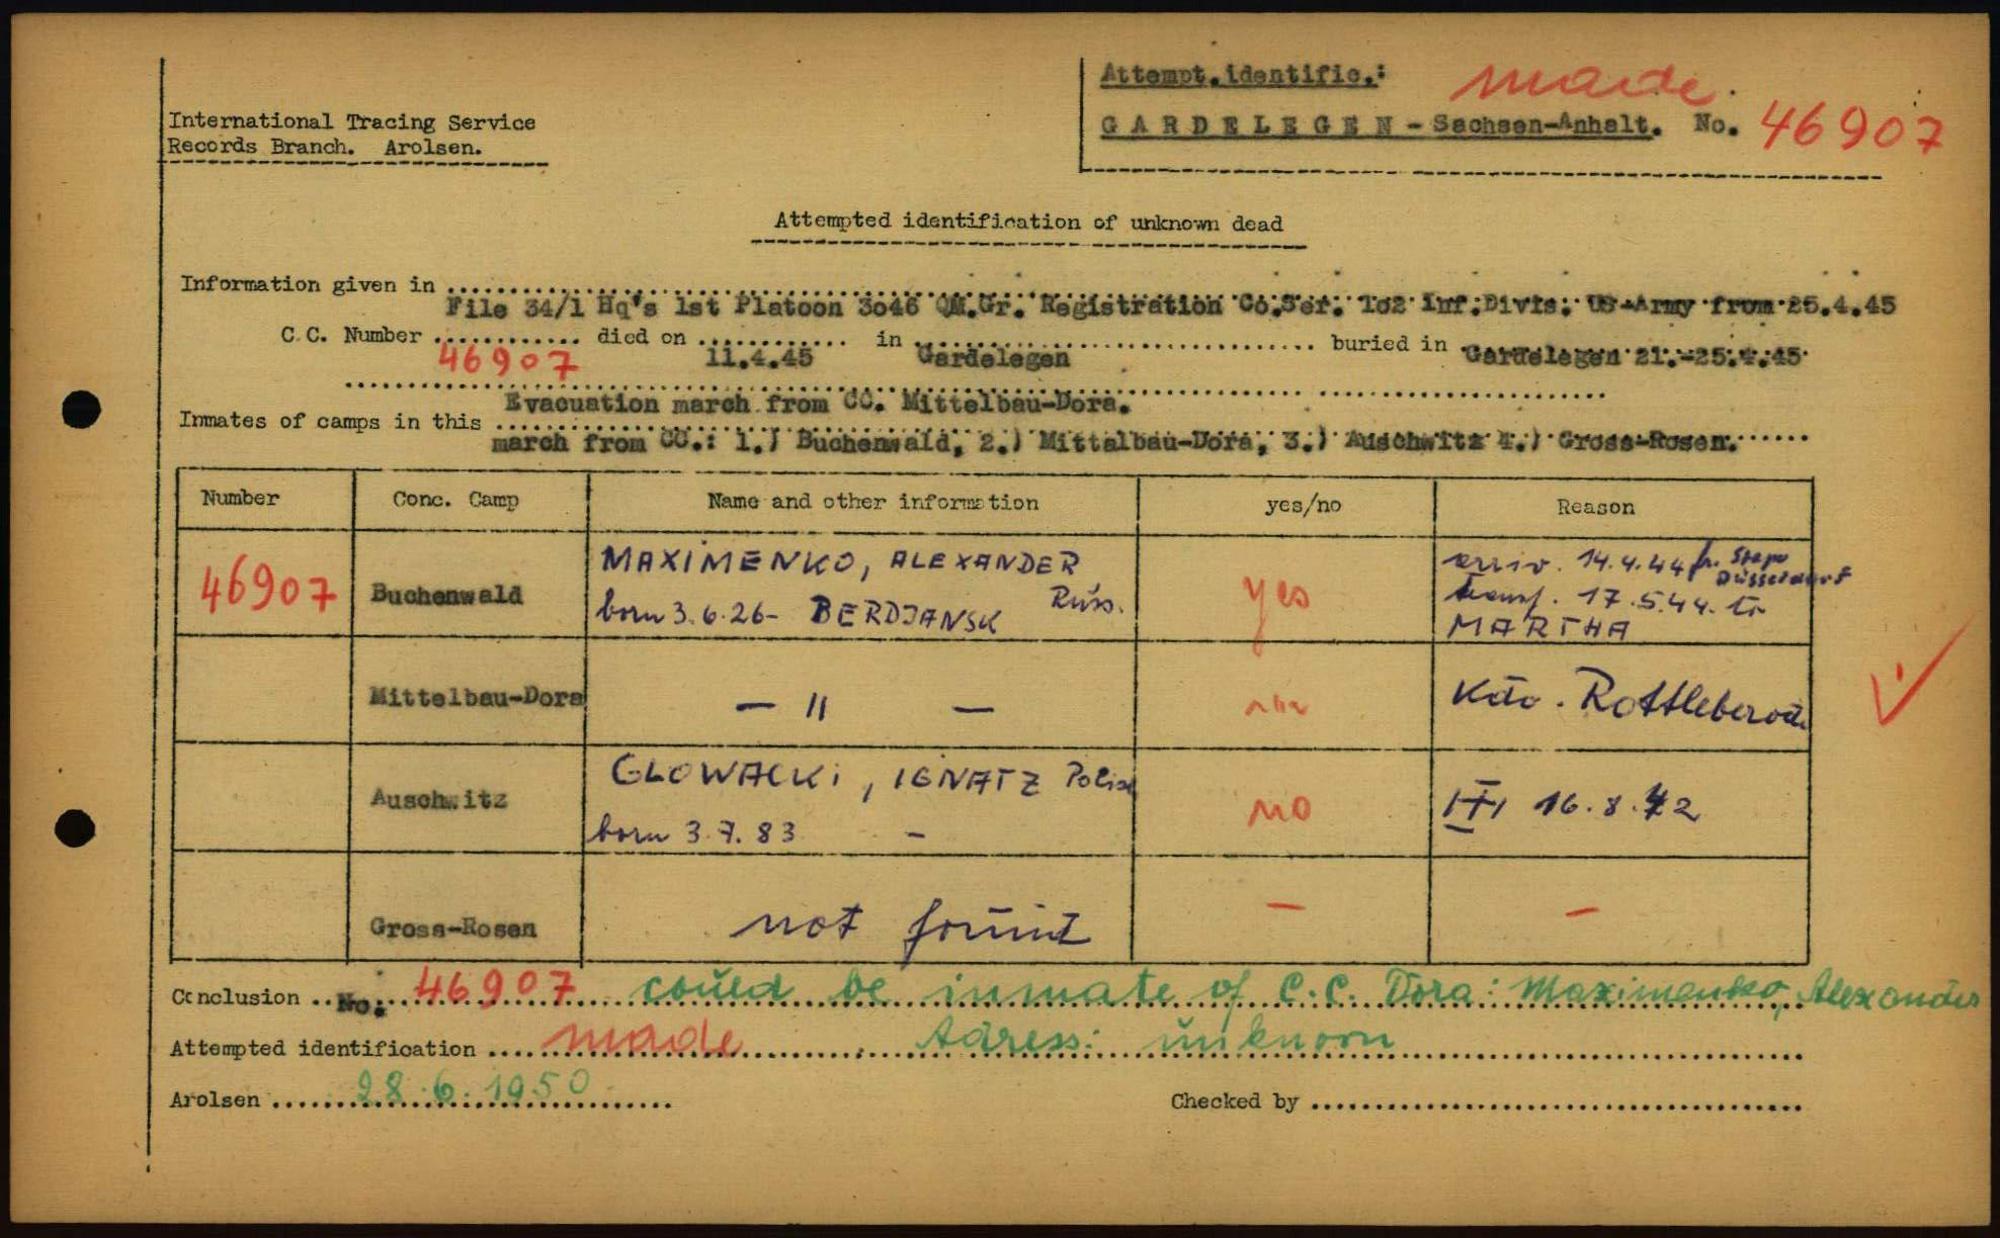 Attempt.identific.: made.
International Tracing Service
Records Branch. Arolsen.
GARDELEGEN - Sachsen-Anhalt. No. 46907
Attempted identification of unknown dead
Information given in File 34/1 Hq's 1st Platoon 3o46 QM.Gr. Registration Co.Ser. 1o2 Inf.Divis. US-Army from 25.4.45
C.C. Number 46907 died on 11.4.45 in Gardelegen buried in Gardelegen 21.-25.4.45
Evacuation march from CC. Mittelbau-Dora.
Inmates of camps in this march from CC.: 1.) Buchenwald, 2.) Mittalbau-Dora, 3.) Auschwitz 4.) Gross-Rosen.
Number Conc. Camp Name and other information yes/no Reason
46907 Buchenwald MAXIMENKO, ALEXANDER yes arriv. 14.4.44 fr. Stapo Düsseldorf
born 3.6.26- BERDJANSK Russ. transf. 17.5.44. to
MARTHA
Mittelbau-Dora — " — Kdo. Rottleberode
Auschwitz GLOWACKI, IGNATZ no 16.8.42
born 3.7.83 -
Gross-Rosen not found — —
Conclusion No: 46907 could be inmate of C.C. Dora: Maximenko, Alexander
Attempted identification made Adress: unknown
Arolsen 28.6.1950 Checked by